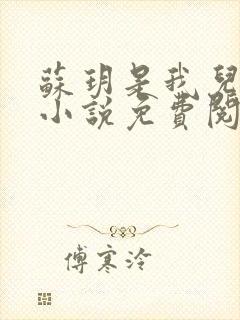 蘇玥是我兒
小說免費閱
傅寒泠